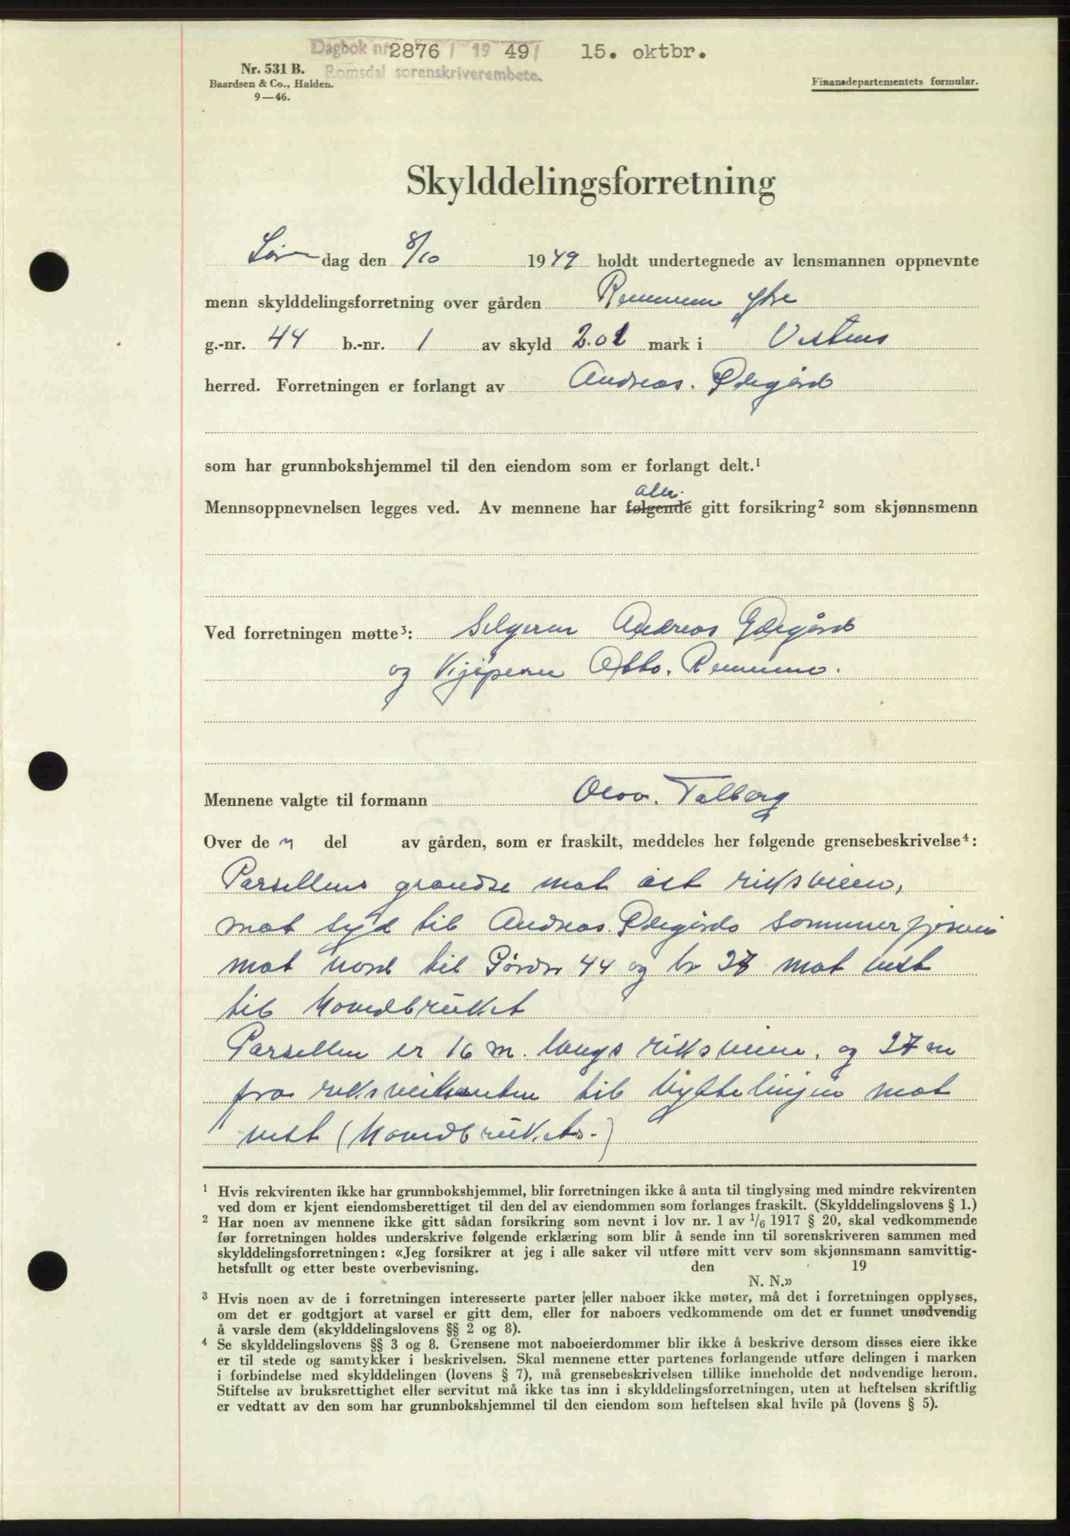 Dagbok nr 2876 / 19 49 / 15. oktbr.
Romsdal sorenskriverembete.
Nr. 531 B.
Baardsen & Co., Halden.
9—46.
Finansdepartementets formular.
Skylddelingsforretning
Lør dag den 8/10 1949 holdt undertegnede av lensmannen oppnevnte
menn skylddelingsforretning over gården Remmem ytre
g.-nr. 44 b.-nr. 1 av skyld 2.01 mark i Vestnes
herred. Forretningen er forlangt av Andreas. Ødegård
som har grunnbokshjemmel til den eiendom som er forlangt delt.¹
alle.
Mennsoppnevnelsen legges ved. Av mennene har følgende gitt forsikring² som skjønnsmenn
Ved forretningen møtte³: Selgeren Andreas Ødegård
og Kjøperen Otto. Remmem.
Mennene valgte til formann Talberg
Over de n del av gården, som er fraskilt, meddeles her følgende grensebeskrivelse⁴:
Parsellens grendse mot øst riksveien,
mot syd til Andreas. Ødegårds sommerfjøsvei
mot nord til Gårdnr 44 og br 27 mot vest
til Hovedbruket
Parsellen er 16 m. langs riksveien, og 27 m
fra riksveikanten til byttelinjen mot
vest (Hovedbrukets.)
¹ Hvis rekvirenten ikke har grunnbokshjemmel, blir forretningen ikke å anta til tinglysing med mindre rekvirenten
ved dom er kjent eiendomsberettiget til den del av eiendommen som forlanges fraskilt. (Skylddelingslovens § 1.)
² Har noen av mennene ikke gitt sådan forsikring som nevnt i lov nr. 1 av 1/6 1917 § 20, skal vedkommende
før forretningen holdes underskrive følgende erklæring som blir å sende inn til sorenskriveren sammen med
skylddelingsforretningen: «Jeg forsikrer at jeg i alle saker vil utføre mitt verv som skjønnsmann samvittig-
hetsfullt og etter beste overbevisning. den 19
N. N.»
³ Hvis noen av de i forretningen interesserte parter eller naboer ikke møter, må det i forretningen opplyses,
om det er godtgjort at varsel er gitt dem, eller for naboers vedkommende om det er funnet unødvendig
å varsle dem (skylddelingslovens §§ 2 og 8).
⁴ Se skylddelingslovens §§ 3 og 8. Grensene mot naboeierdommer blir ikke å beskrive dersom disses eiere ikke
er til stede og samtykker i beskrivelsen. Skal mennene etter partenes forlangende utføre delingen i marken
i forbindelse med skylddelingen (lovens § 7), må grensebeskrivelsen tillike inneholde det nødvendige herom.
Stiftelse av bruksrettighet eller servitut må ikke tas inn i skylddelingsforretningen, uten at heftelsen skriftlig
er vedtatt av den som har grunnbokshjemmel til den eiendom som heftelsen skal hvile på (lovens § 5).